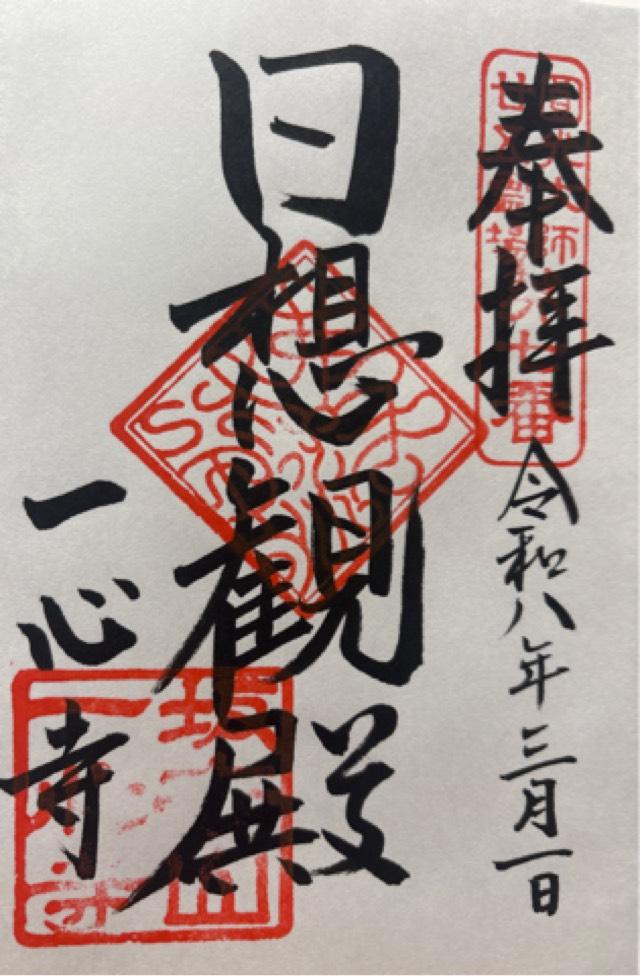 奉拝
令和八年三月一日
日想観殿
一心寺